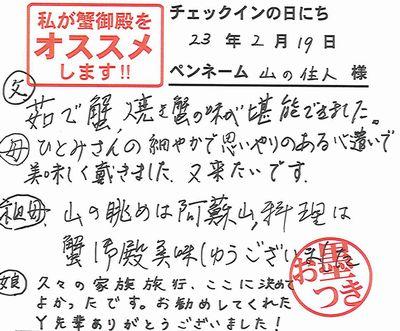 私が蟹御殿を
オススメ
します!!
チェックインの日にち
23年2月19日
ペンネーム 山の住人 様
父 茹で蟹,焼き蟹の味が堪能できました。
母 ひとみさんの細やかで思いやりのある心遣いで
美味しく戴きました.又来たいです.
祖母 山の眺めは阿蘇山,料理は
蟹御殿美味しゅうございました
娘 久々の家族旅行、ここに決めて
よかったです。お勧めしてくれた
Y先輩ありがとうございました!
お墨つき